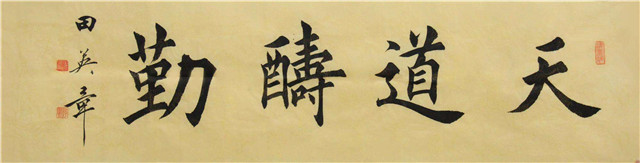 天道醻勤
田英章